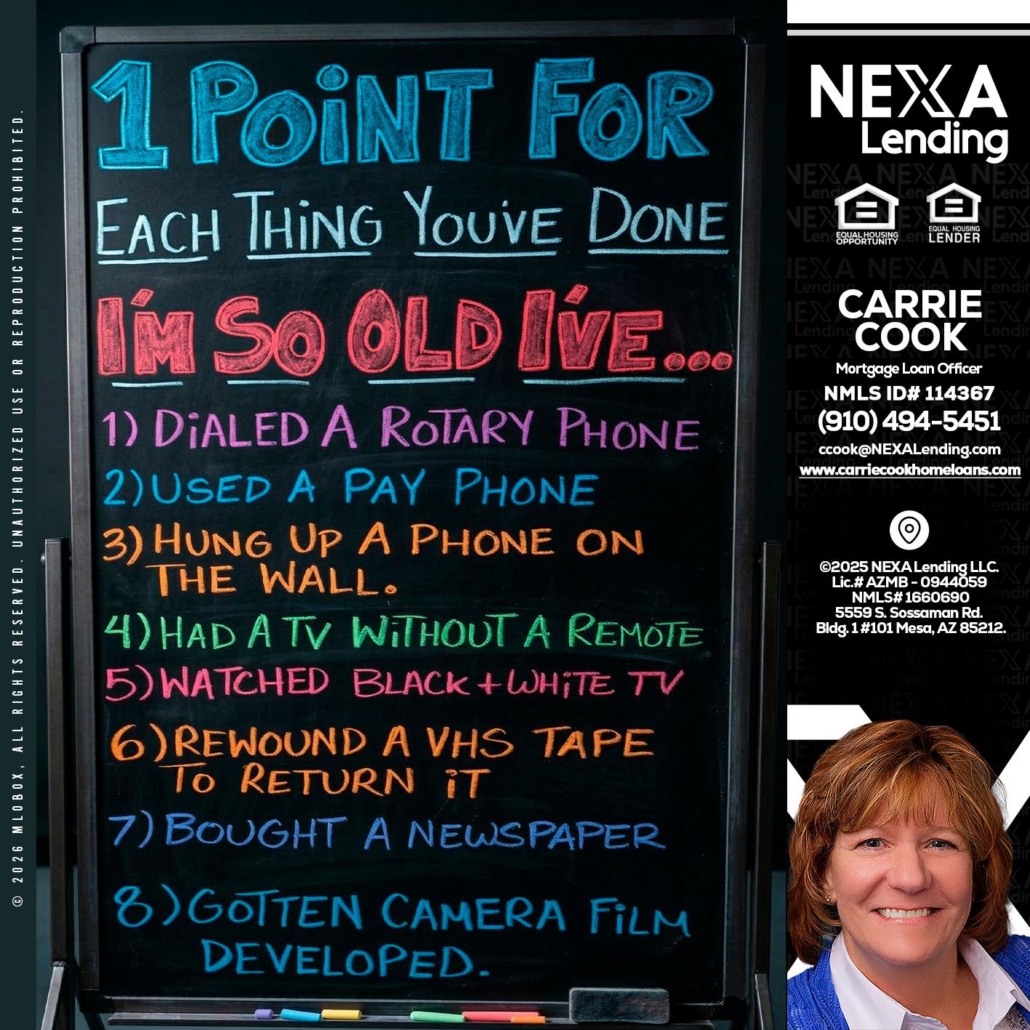 1 POiNT FOR
EACH THING YOU'VE DONE
I'M SO OLD I'VE...
1) DiALED A ROTARY PHONE
2) USED A PAY PHONE
3) HUNG UP A PHONE ON
THE WALL.
4) HAD A TV WiTHOUT A REMOTE
5) WATCHED BLACK + WHiTE TV
6) REWOUND A VHS TAPE
TO RETURN iT
7) BOUGHT A NEWSPAPER
8) GOTTEN CAMERA FiLM
DEVELOPED.
© 2026 MLOBOX, ALL RIGHTS RESERVED. UNAUTHORIZED USE OR REPRODUCTION PROHIBITED.
NEXA
Lending
EQUAL HOUSING
OPPORTUNITY
EQUAL HOUSING
LENDER
CARRIE
COOK
Mortgage Loan Officer
NMLS ID# 114367
(910) 494-5451
ccook@NEXALending.com
www.carriecookhomeloans.com
©2025 NEXA Lending LLC.
Lic.# AZMB - 0944059
NMLS# 1660690
5559 S. Sossaman Rd.
Bldg. 1 #101 Mesa, AZ 85212.